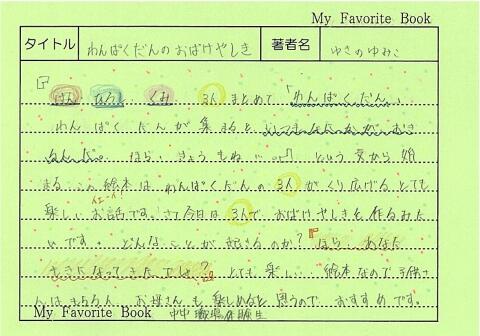 My Favorite Book
タイトル わんぱくだんのおばけやしき 著者名 ゆきのゆみこ
『
けん ひろし くみ 3人まとめて「わんぱくだん」。
わんぱくだんが集まると
ほら、きょうもね…。』という文から始
まるこの絵本はわんぱくだんの3人がくり広げるとても
楽しいお話です。さて今日は3人で、おばけやしきを作るみた
いです。どんなことが起きるのか?『ほら、あなた
もきになってきたでしょ?』とても楽しい 絵本なので子供さ
んはもちろん お母さんも楽しめると思うので おすすめです。
My Favorite Book 中中 職場体験生